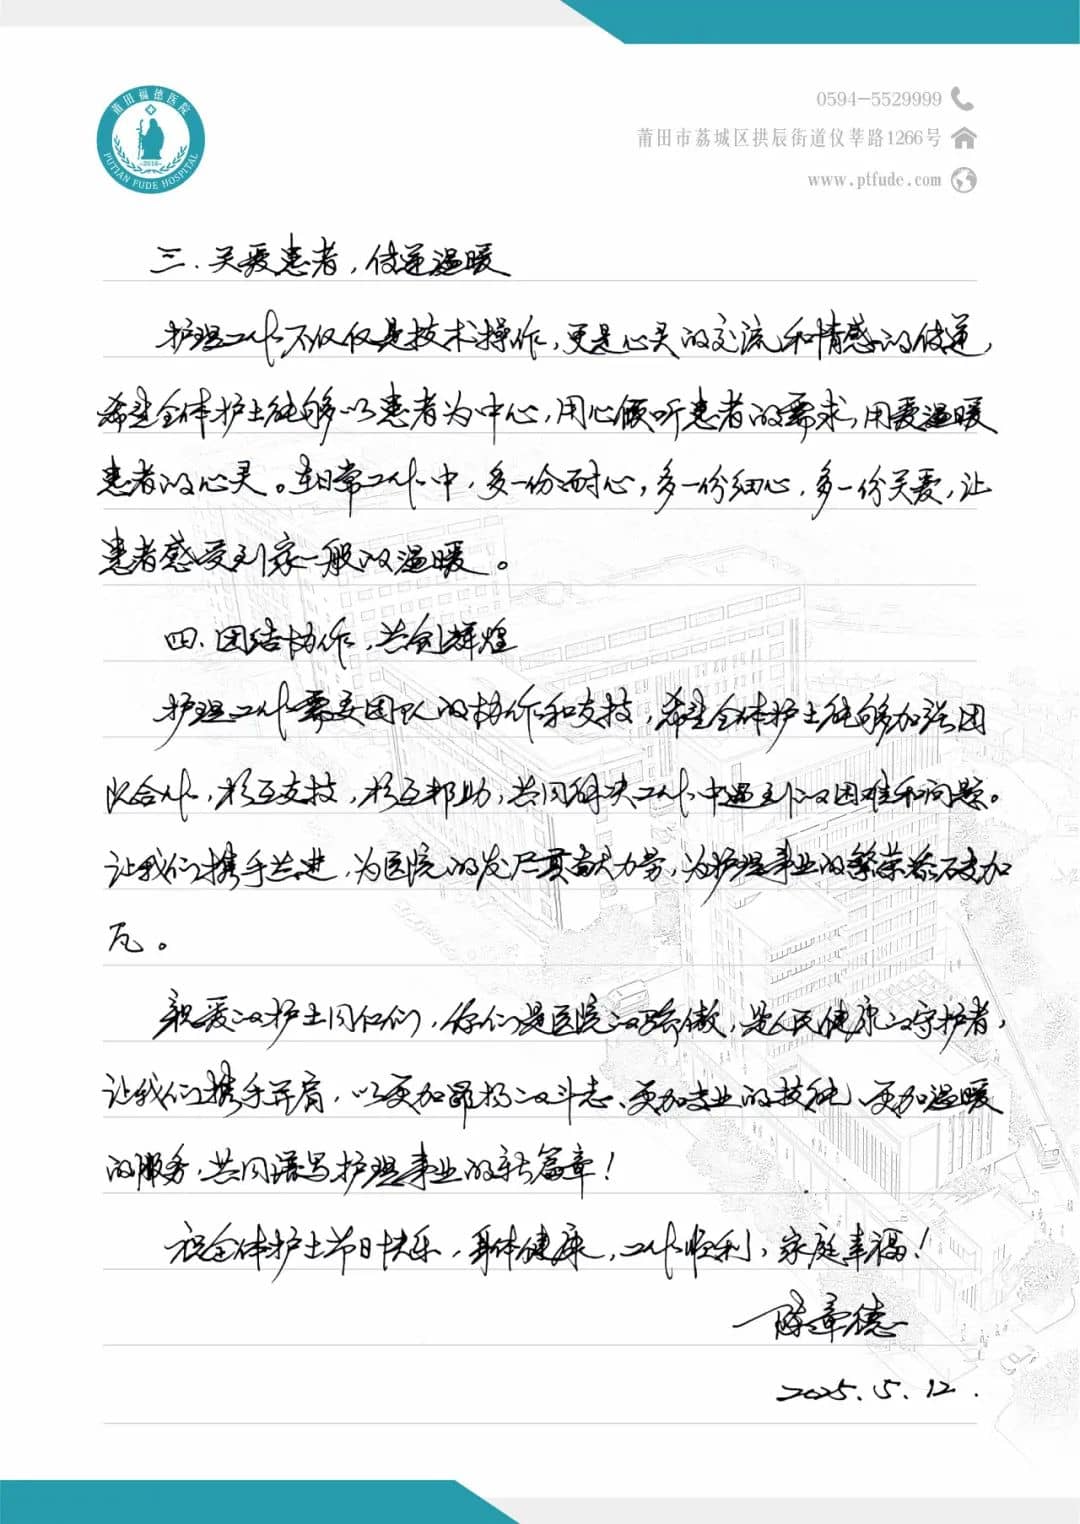 莆田福德医院
2016
PUTIAN FUDE HOSPITAL
0594-5529999
莆田市荔城区拱辰街道仪莘路1266号
www.ptfude.com
三.关爱患者,传递温暖
护理工作不仅仅是技术操作,更是心灵的交流和情感的传递,
希望全体护士能够以患者为中心,用心倾听患者的需求,用爱温暖
患者的心灵。在日常工作中,多一份耐心,多一份细心,多一份关爱,让
患者感受到家一般的温暖。
四.团结协作,共创辉煌
护理工作需要团队的协作和支持,希望全体护士能够加强团
队合作,相互支持,相互帮助,共同解决工作中遇到的困难和问题。
让我们携手共进,为医院的发展贡献力量,为护理事业的繁荣添砖加
瓦。
亲爱的护士同仁们,你们是医院的骄傲,是人民健康的守护者,
让我们携手并肩,以更加昂扬的斗志、更加专业的技能、更加温暖
的服务,共同谱写护理事业的新篇章!
祝全体护士节日快乐,身体健康,工作顺利,家庭幸福!
陈章德
2025.5.12.